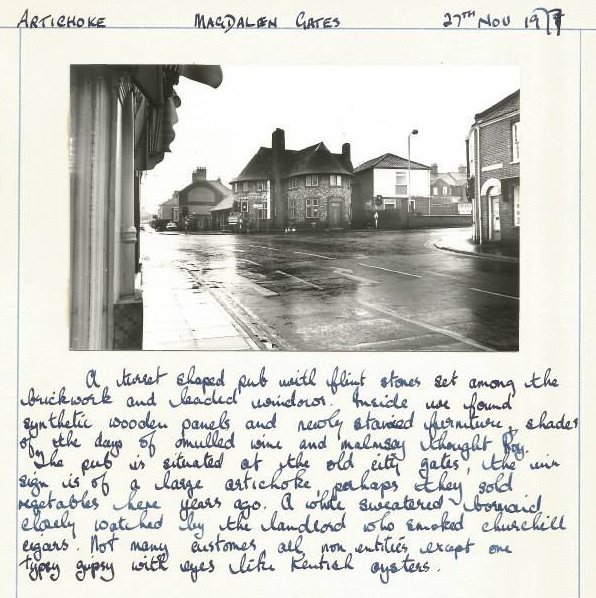 ARTICHOKE MAGDALEN GATES 27TH NOV 197
A turret shaped pub with flint stones set among the
brickwork and leaded windows. Inside we found
synthetic wooden panels and newly stained furniture, shades
of the days of mulled wine and malmsay thought Roy.
The pub is situated at the old city gates, the inn
sign is of a large artichoke, perhaps they sold
vegetables here years ago. A white sweatered barmaid
closely watched by the landlord who smoked churchill
cigars. Not many customers all non entities except one
typsy gypsy with eyes like Kentish oysters.